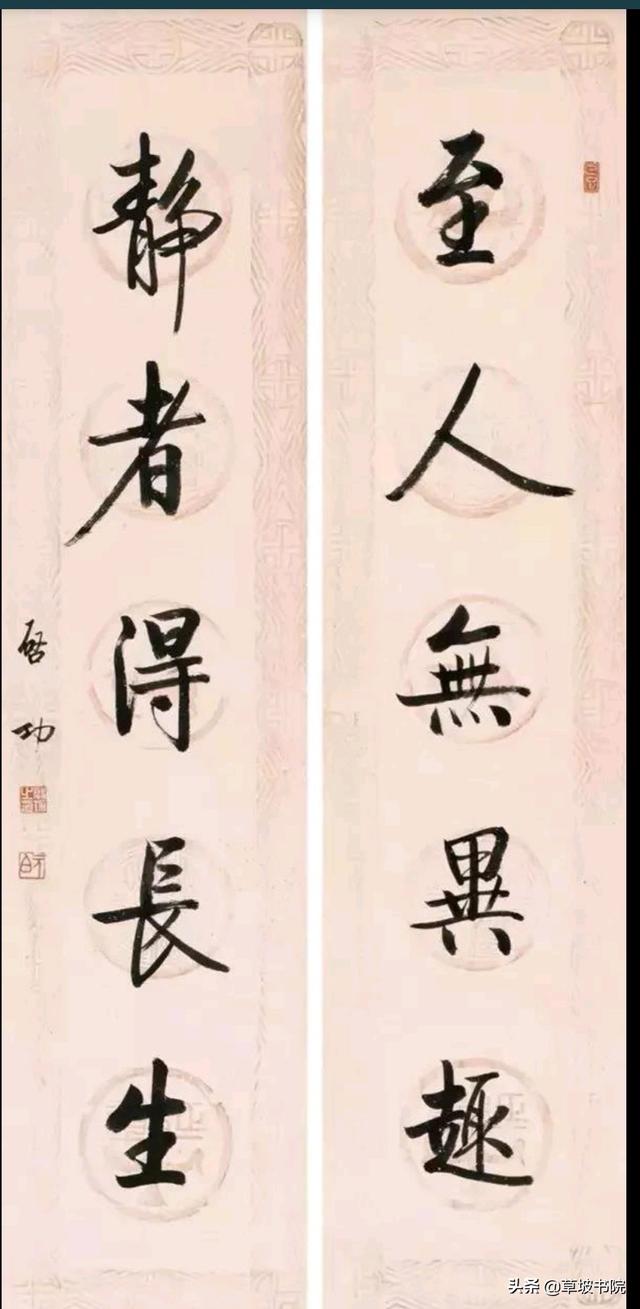 至人無異趣
靜者得長生
啓功
头条 @草坡书院